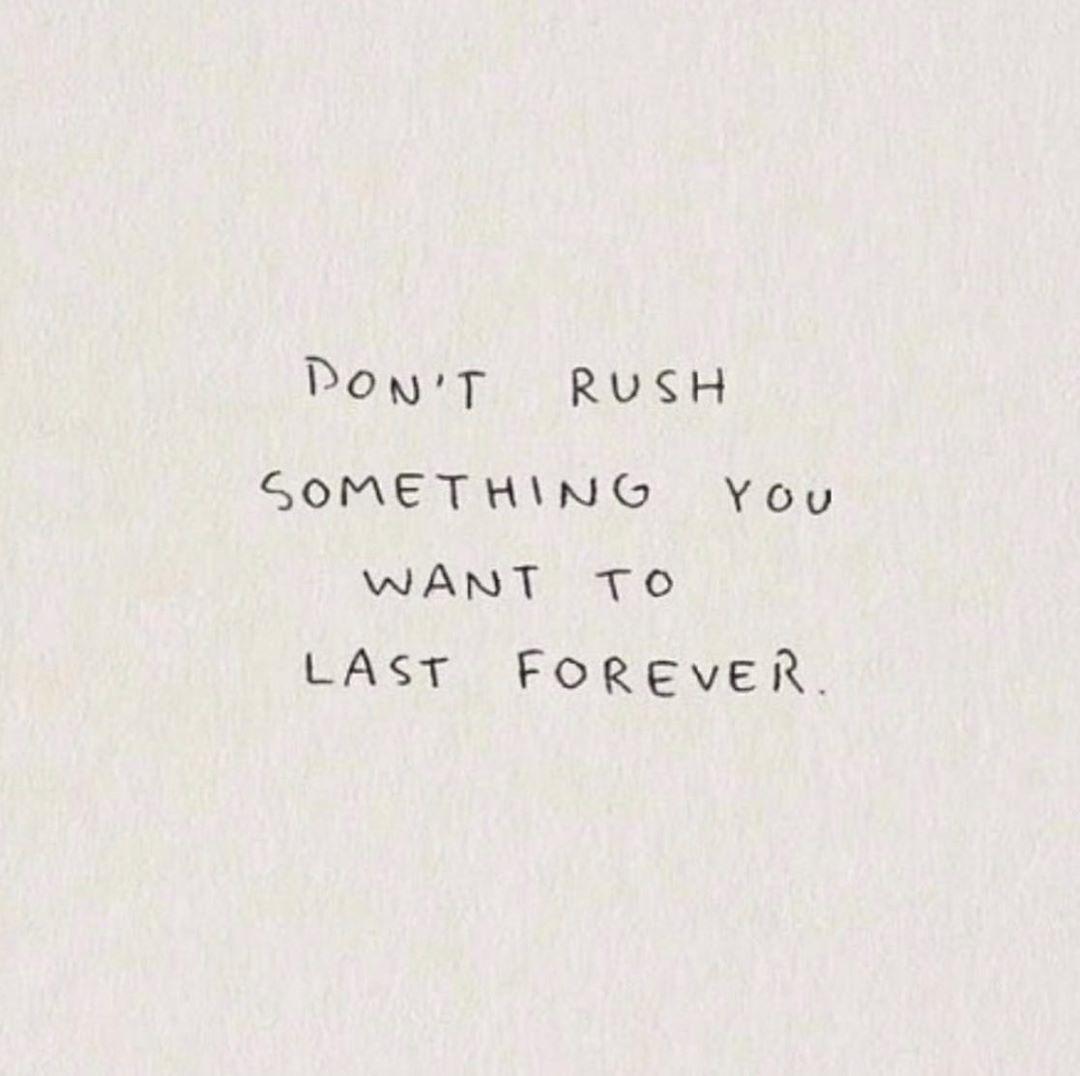 DON'T RUSH
SOMETHING YOU
WANT TO
LAST FOREVER.